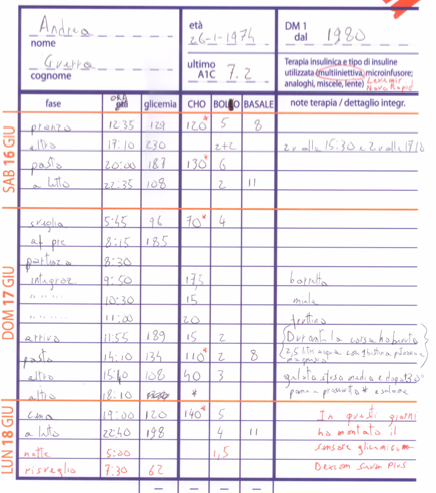 Andrea
nome
Guerra
cognome
età
26-1-1974
ultimo
A1C 7.2
DM 1
dal 1980
Terapia insulinica e tipo di insuline
utilizzata (multiiniettiva, microinfusore,
analoghi, miscele, lente) Levemir
NovoRapid
fase ORA glicemia CHO BOLO BASALE note terapia / dettaglio integr.
SAB 16 GIU
pranzo 12:35 129 120* 5 8
altro 17:10 230 2+2 2u alle 15:30 e 2u alle 17/10
pasto 20:00 187 130* 6
a letto 22:35 108 2 11
DOM 17 GIU
sveglia 5:45 96 70* 4
8:15 185
partenza 8:30
integraz. 9:50 17,5 borretta
" " " 10:30 15 miele
" " " 11:00 20
arrivo 11:55 189 15 2 Durante la corsa ho bevuto
pasto 14:10 134 110* 2 8 2,5 litri acqua con
altro 108 40 3 gelato
altro 18:10 * pane e prosciutto * e salume
LUN 18 GIU
cena 19:00 120 140* 5 In questi giorni
a letto 22:40 198 4 11 ho montato il
notte 5:00 1,5 sensore glicemico
risveglio 7:30 62 Dexcom Seven Plus